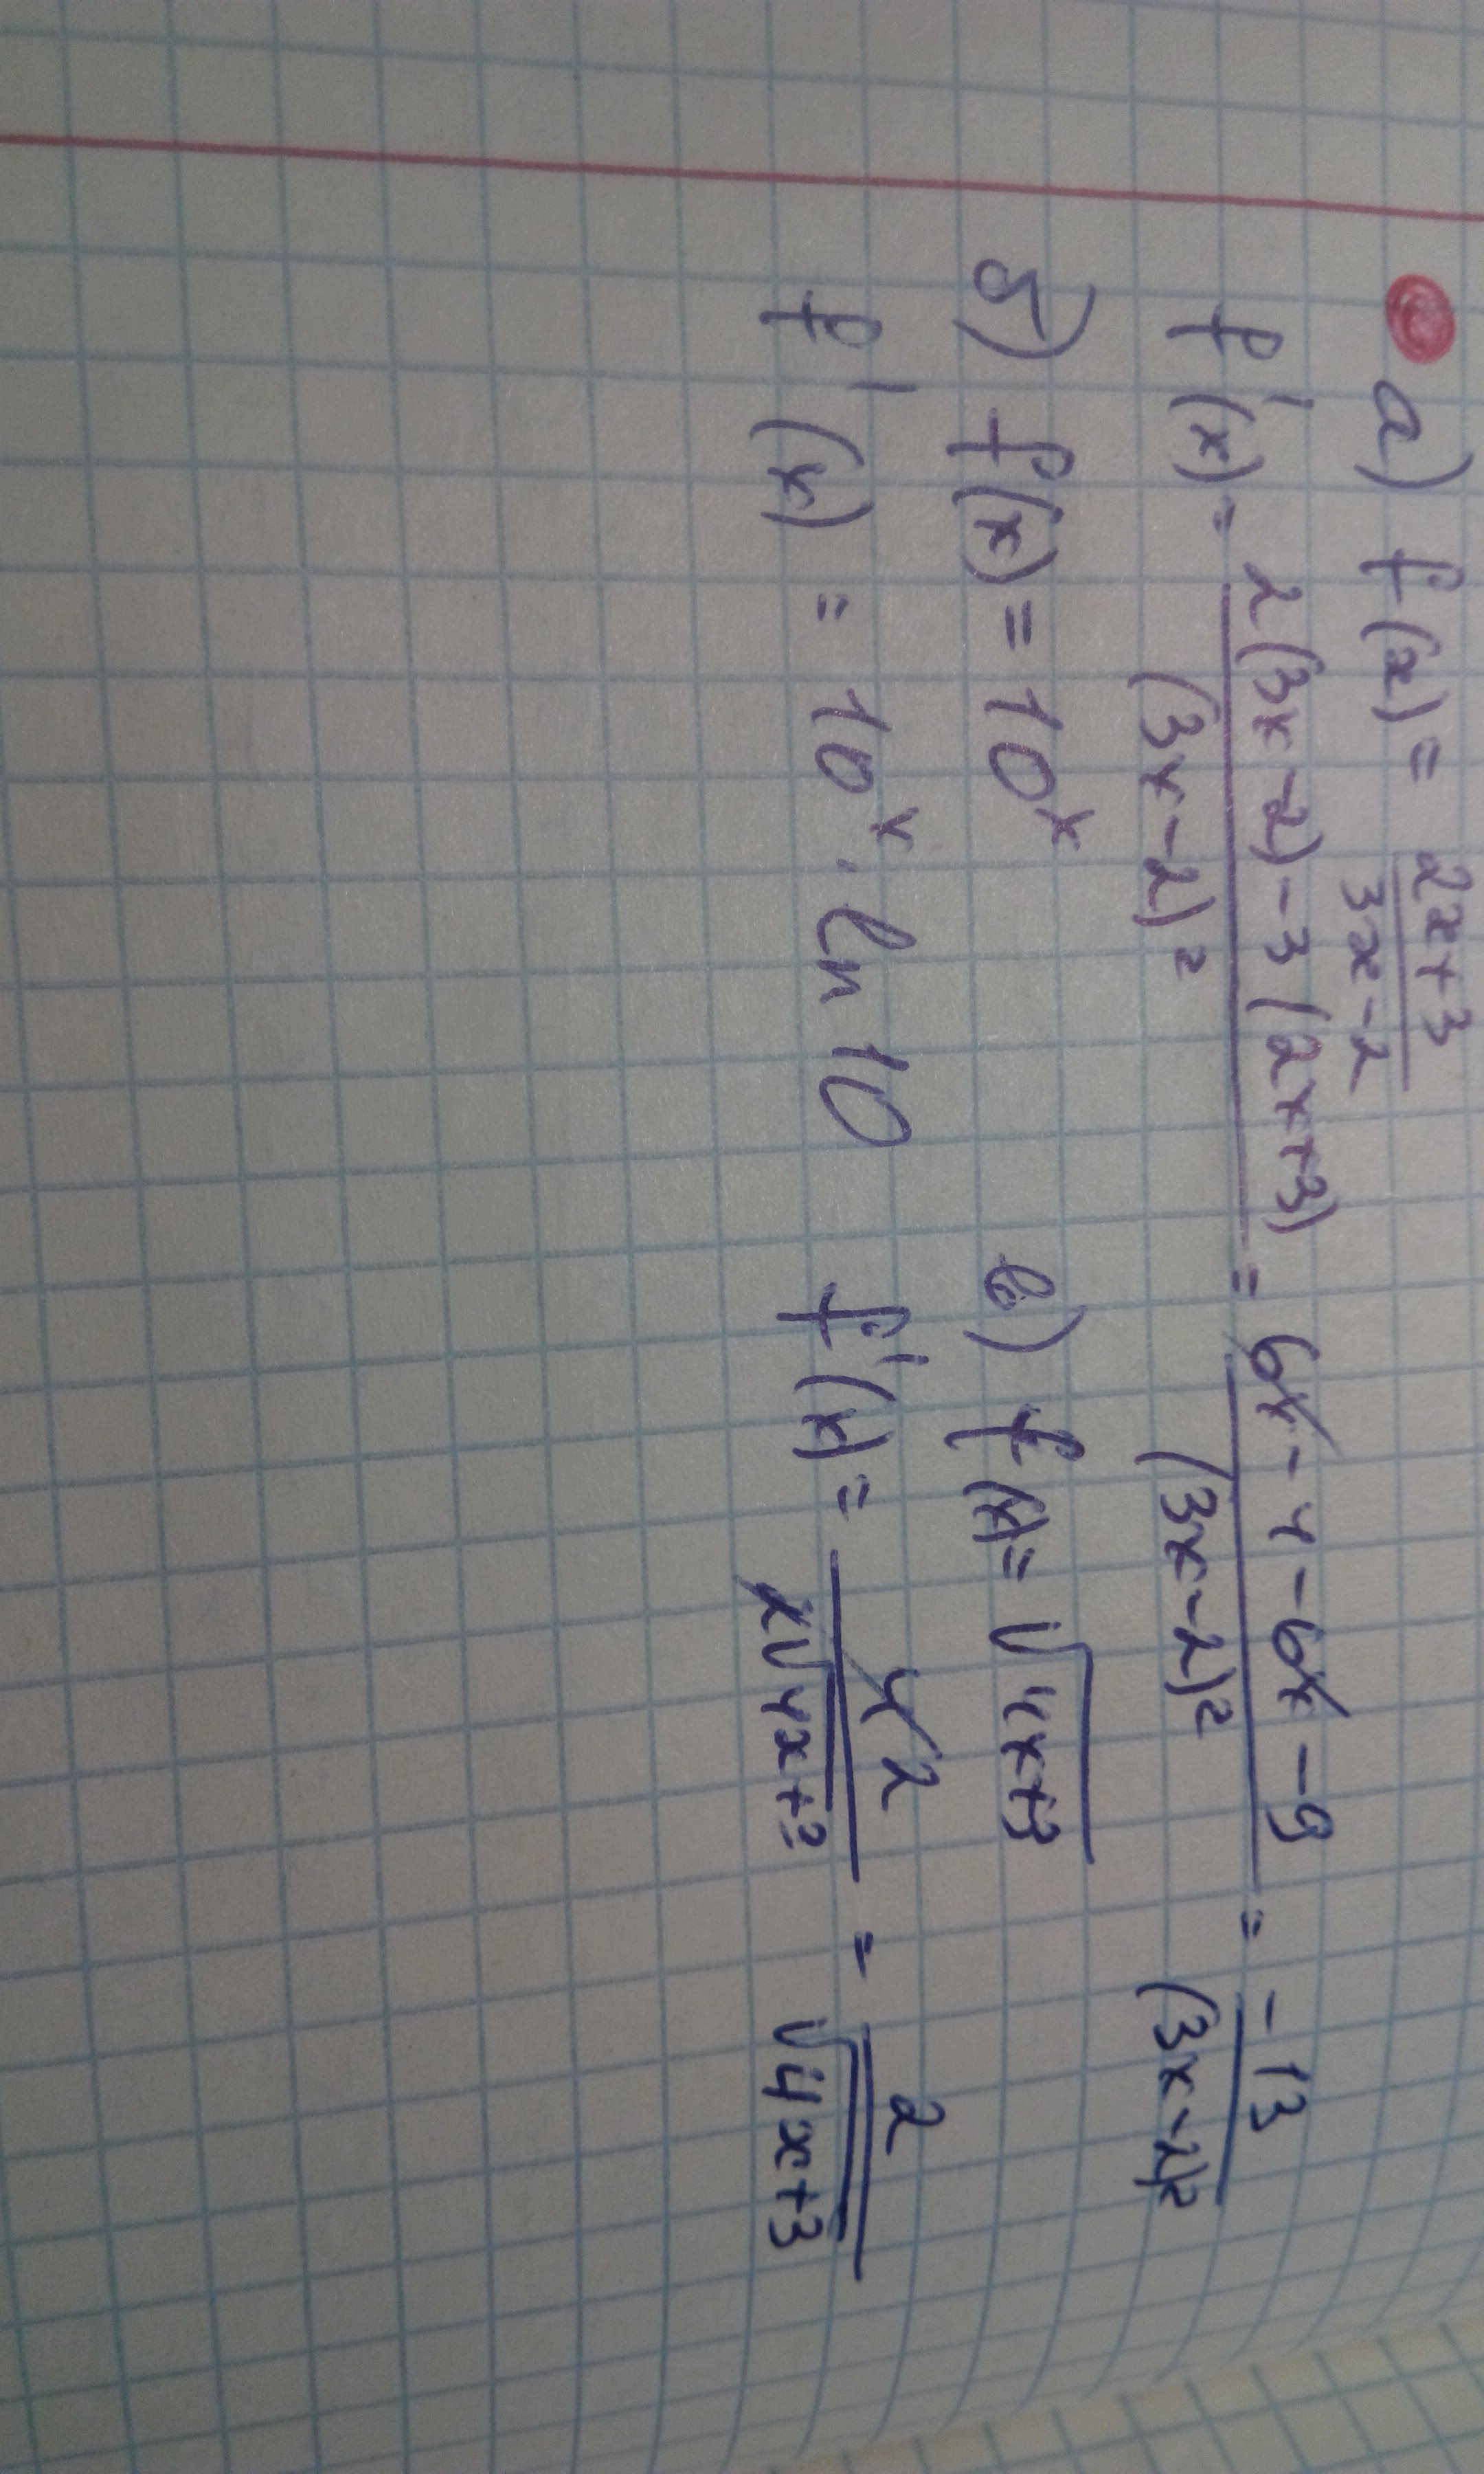 а) f(x) = (2x+3)/(3x-2)
f'(x) = (2(3x-2)-3(2x+3))/(3x-2)² = (6x-4-6x-9)/(3x-2)² = (-13)/(3x-2)²
б) f(x) = 10ˣ в) f(x) = √(4x+3)
f'(x) = 10ˣ · ln 10 f'(x) = 4 2/(2√(4x+3)) = 2/√(4x+3)